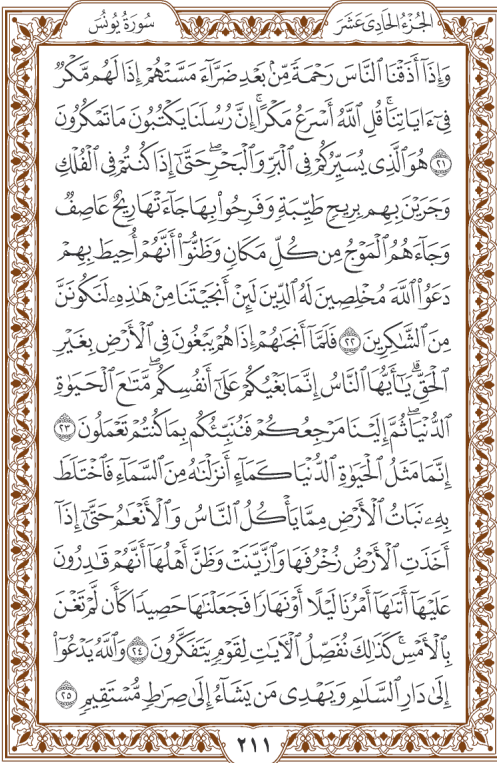 الجُزْءُ الحَادِي عَشَر
سُورَةُ يُونُس
وَإِذَآ أَذَقْنَا ٱلنَّاسَ رَحْمَةً مِّنۢ بَعْدِ ضَرَّآءَ مَسَّتْهُمْ إِذَا لَهُم مَّكْرٌ
فِىٓ ءَايَاتِنَا ۚ قُلِ ٱللَّهُ أَسْرَعُ مَكْرًا ۚ إِنَّ رُسُلَنَا يَكْتُبُونَ مَا تَمْكُرُونَ
٢١ هُوَ ٱلَّذِى يُسَيِّرُكُمْ فِى ٱلْبَرِّ وَٱلْبَحْرِ ۖ حَتَّىٰٓ إِذَا كُنتُمْ فِى ٱلْفُلْكِ
وَجَرَيْنَ بِهِم بِرِيحٍ طَيِّبَةٍ وَفَرِحُوا۟ بِهَا جَآءَتْهَا رِيحٌ عَاصِفٌ
وَجَآءَهُمُ ٱلْمَوْجُ مِن كُلِّ مَكَانٍ وَظَنُّوٓا۟ أَنَّهُمْ أُحِيطَ بِهِمْ
دَعَوُا۟ ٱللَّهَ مُخْلِصِينَ لَهُ ٱلدِّينَ لَئِنْ أَنجَيْتَنَا مِنْ هَٰذِهِۦ لَنَكُونَنَّ
مِنَ ٱلشَّٰكِرِينَ ٢٢ فَلَمَّآ أَنجَىٰهُمْ إِذَا هُمْ يَبْغُونَ فِى ٱلْأَرْضِ بِغَيْرِ
ٱلْحَقِّ ۗ يَٰٓأَيُّهَا ٱلنَّاسُ إِنَّمَا بَغْيُكُمْ عَلَىٰٓ أَنفُسِكُم ۖ مَّتَٰعَ ٱلْحَيَوٰةِ
ٱلدُّنْيَا ۖ ثُمَّ إِلَيْنَا مَرْجِعُكُمْ فَنُنَبِّئُكُم بِمَا كُنتُمْ تَعْمَلُونَ ٢٣
إِنَّمَا مَثَلُ ٱلْحَيَوٰةِ ٱلدُّنْيَا كَمَآءٍ أَنزَلْنَٰهُ مِنَ ٱلسَّمَآءِ فَٱخْتَلَطَ
بِهِۦ نَبَاتُ ٱلْأَرْضِ مِمَّا يَأْكُلُ ٱلنَّاسُ وَٱلْأَنْعَٰمُ حَتَّىٰٓ إِذَآ
أَخَذَتِ ٱلْأَرْضُ زُخْرُفَهَا وَٱزَّيَّنَتْ وَظَنَّ أَهْلُهَآ أَنَّهُمْ قَٰدِرُونَ
عَلَيْهَآ أَتَىٰهَآ أَمْرُنَا لَيْلًا أَوْ نَهَارًا فَجَعَلْنَٰهَا حَصِيدًا كَأَن لَّمْ تَغْنَ
بِٱلْأَمْسِ ۚ كَذَٰلِكَ نُفَصِّلُ ٱلْءَايَٰتِ لِقَوْمٍ يَتَفَكَّرُونَ ٢٤ وَٱللَّهُ يَدْعُوٓا۟
إِلَىٰ دَارِ ٱلسَّلَٰمِ وَيَهْدِى مَن يَشَآءُ إِلَىٰ صِرَٰطٍ مُّسْتَقِيمٍ ٢٥
٢١١